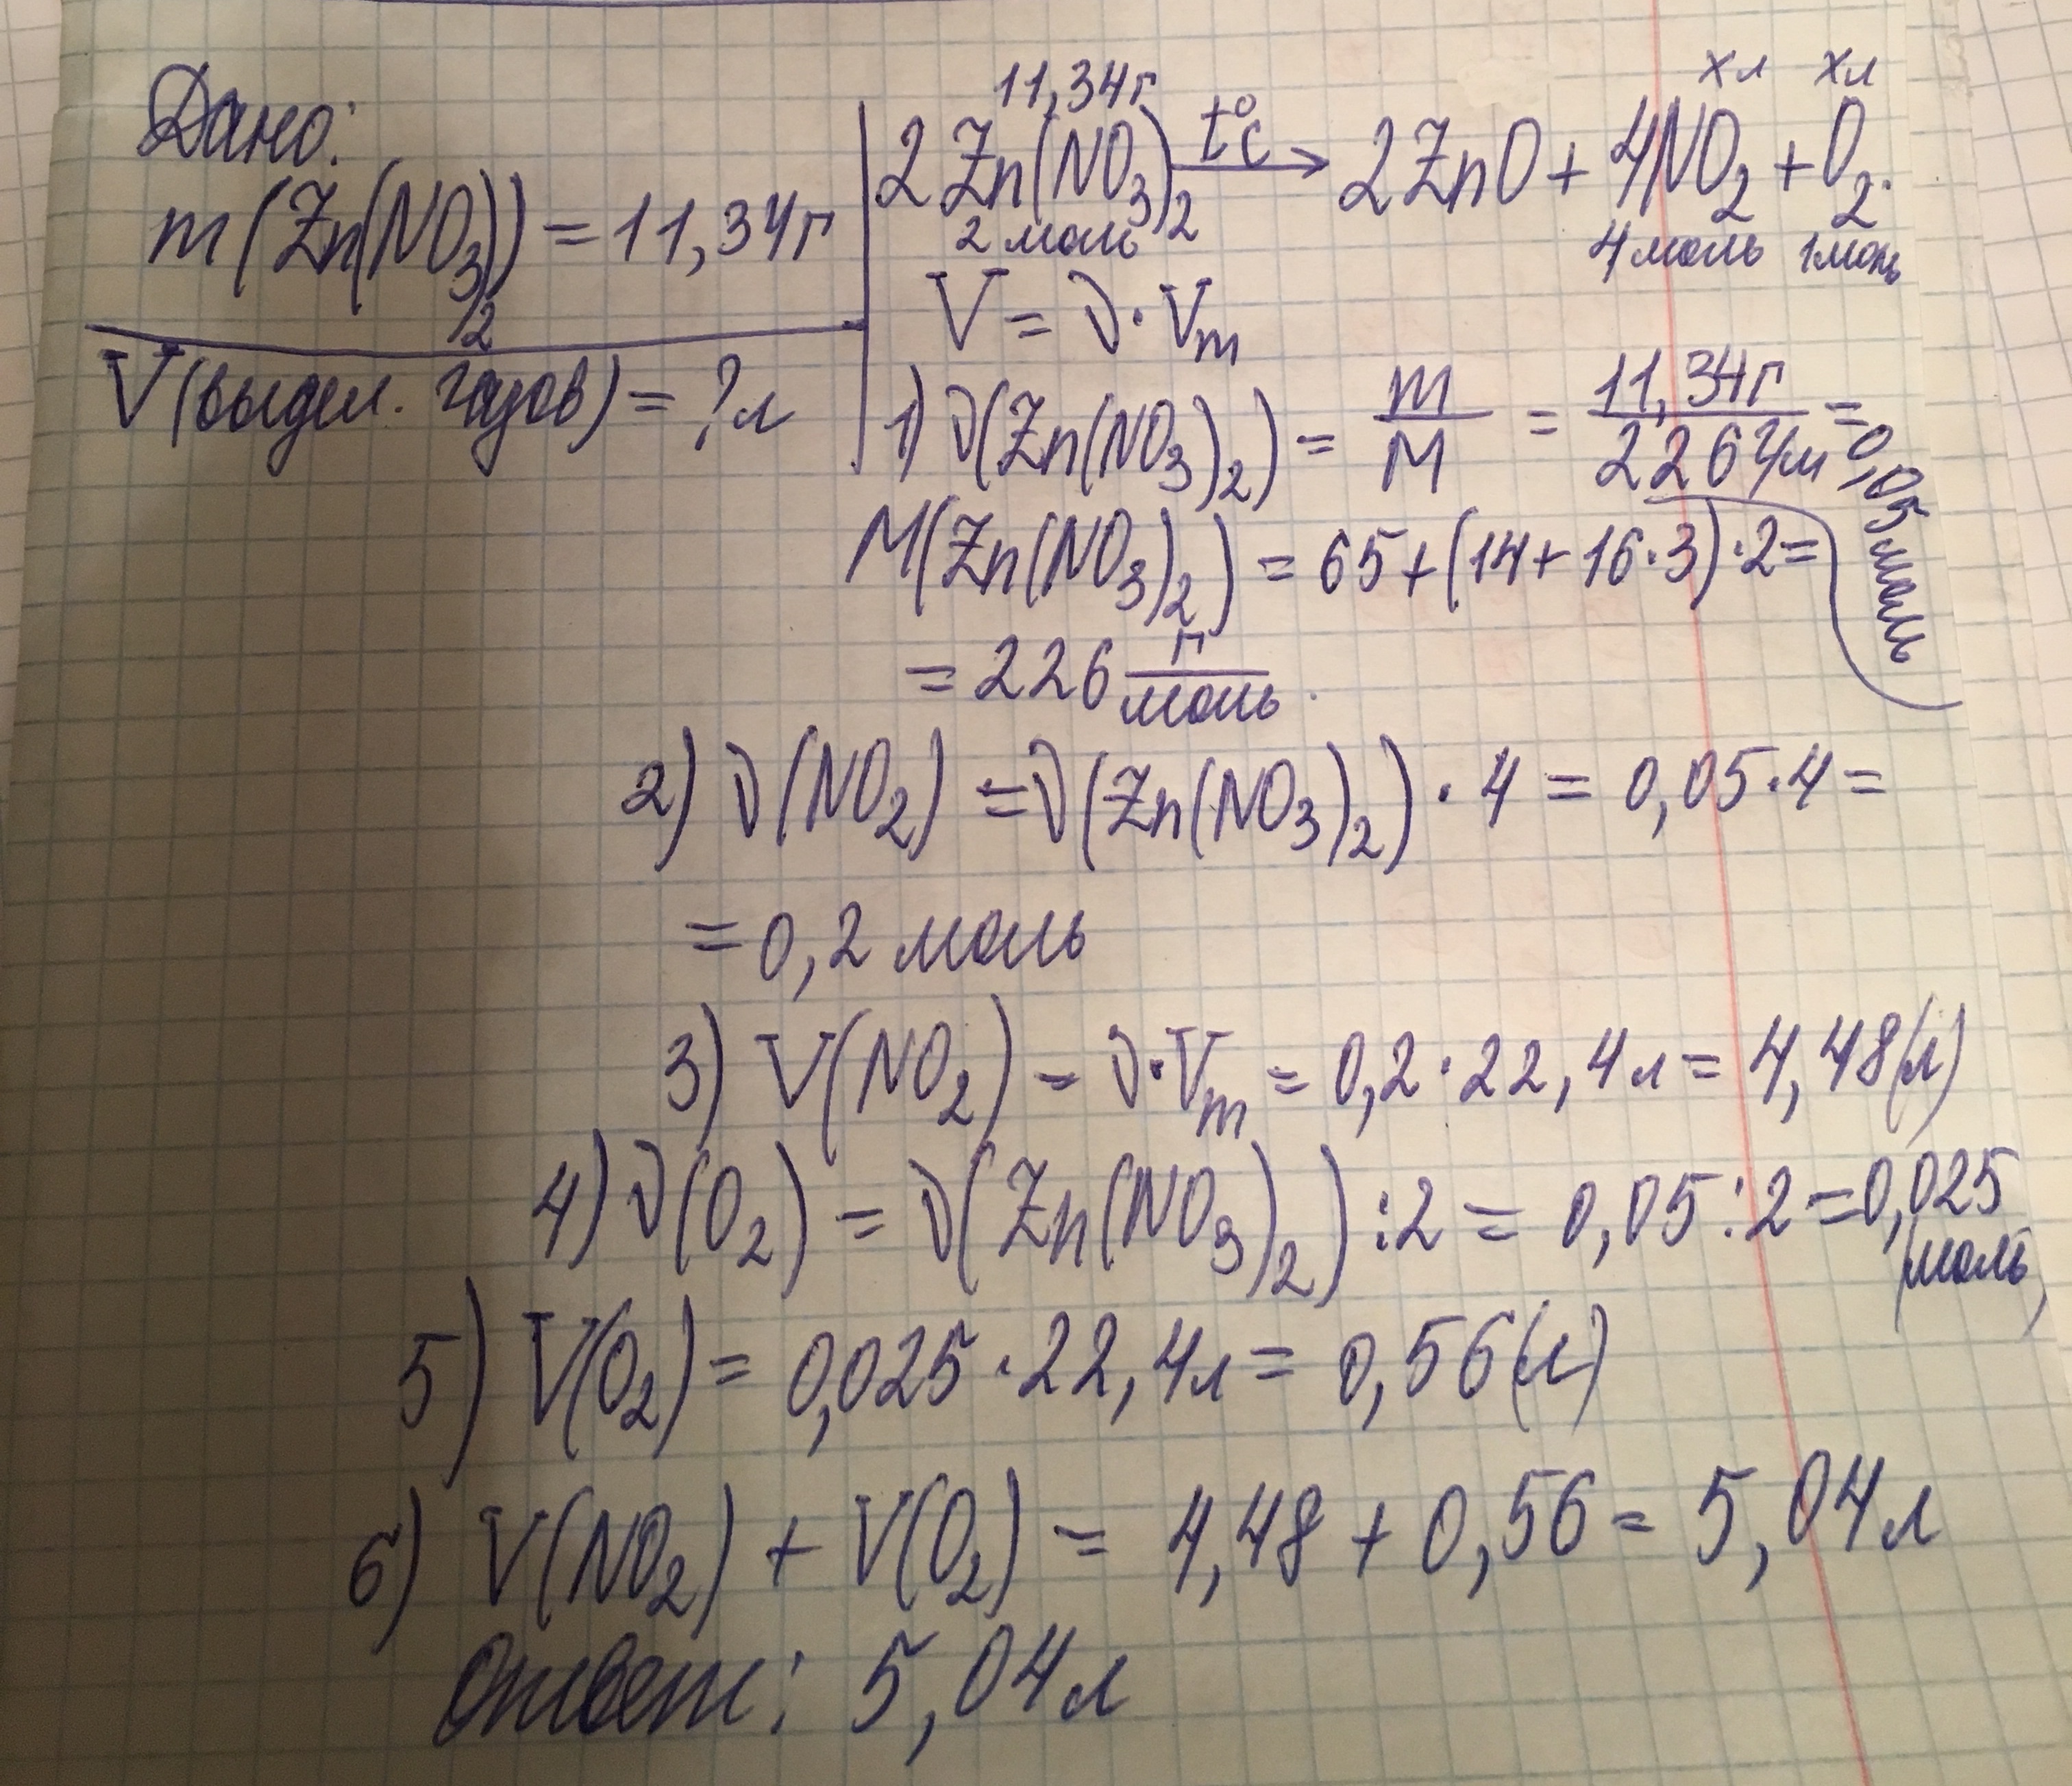 Дано:
m(Zn(NO₃)₂) = 11,34г
V(выдел. газов) = ? л
11,34г хл хл
2Zn(NO₃)₂ t°C → 2ZnO + 4NO₂ + O₂.
2 моль 4 моль 1 моль
V = ν · Vm
1) ν(Zn(NO₃)₂) = m/M = 11,34г/226 г/м = 0,05 моль
M(Zn(NO₃)₂) = 65 + (14 + 16·3)·2 =
= 226 г/моль.
2) ν(NO₂) = ν(Zn(NO₃)₂) · 4 = 0,05·4 =
= 0,2 моль
3) V(NO₂) = ν·Vm = 0,2·22,4л = 4,48(л)
4) ν(O₂) = ν(Zn(NO₃)₂) : 2 = 0,05 : 2 = 0,025
(моль)
5) V(O₂) = 0,025·22,4л = 0,56(л)
6) V(NO₂) + V(O₂) = 4,48 + 0,56 = 5,04л
Ответ: 5,04л